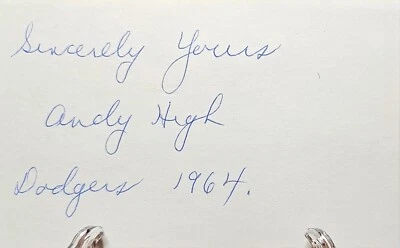 Sincerely Yours
Andy High
Dodgers 1964.